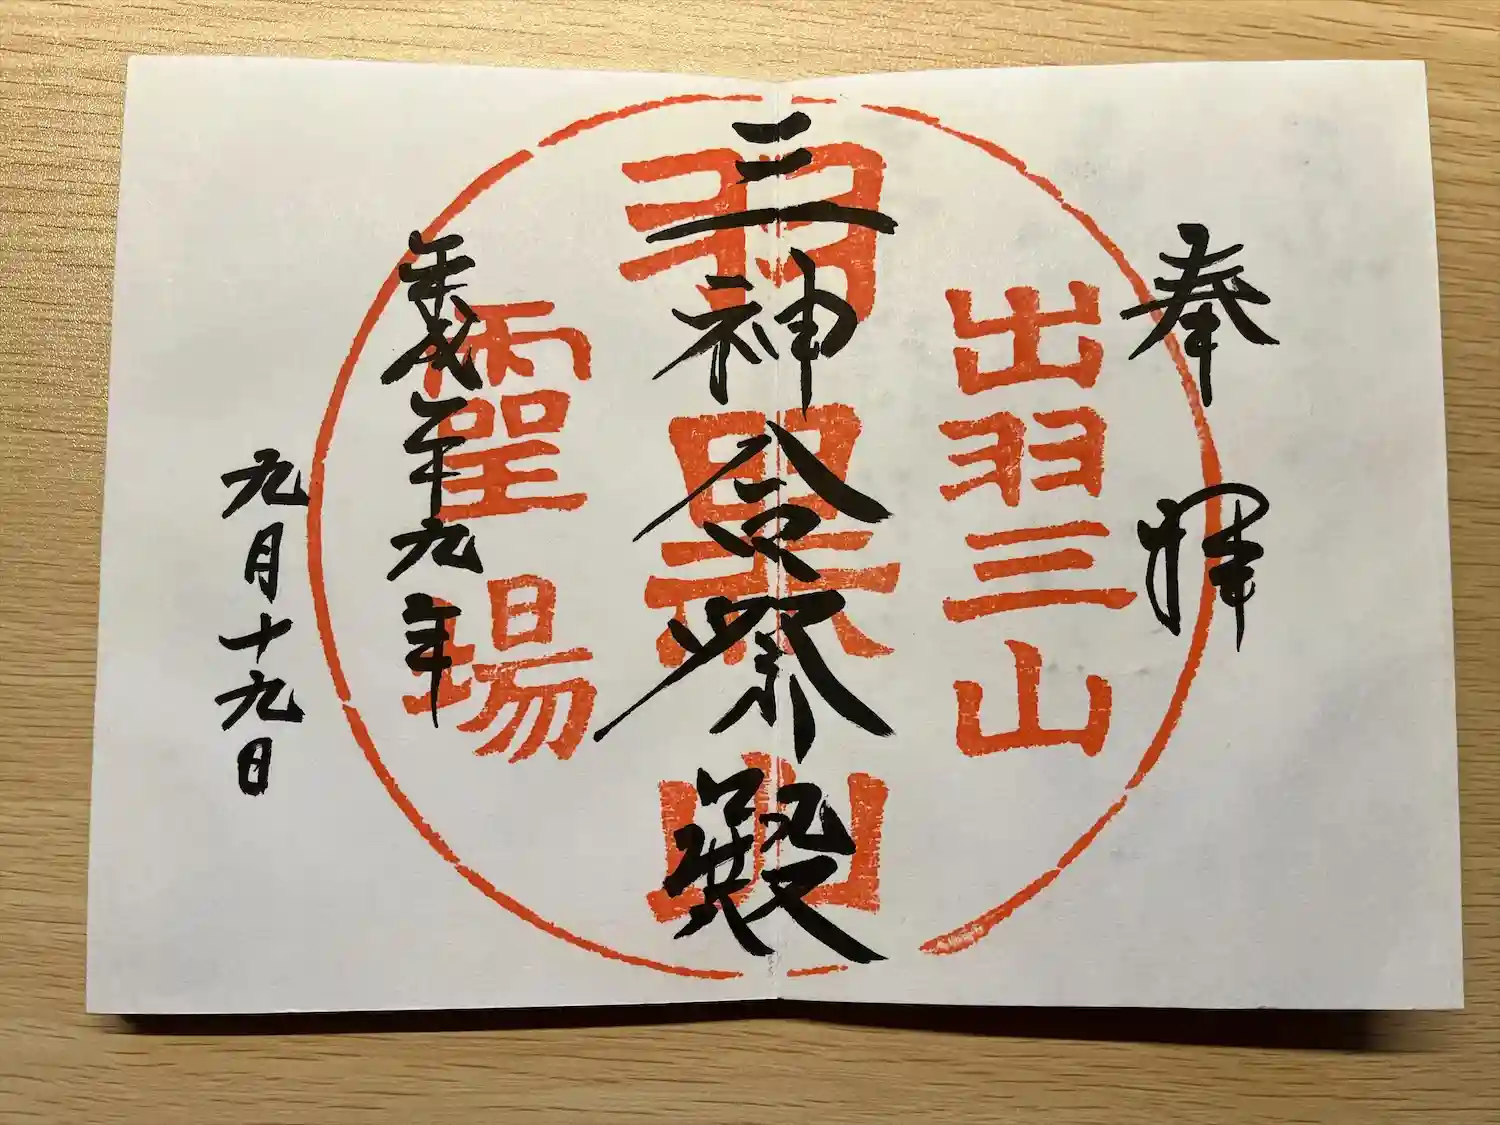 奉拝
出羽三山
三神合祭殿
羽黒山
靈場
平成廿九年
九月十九日